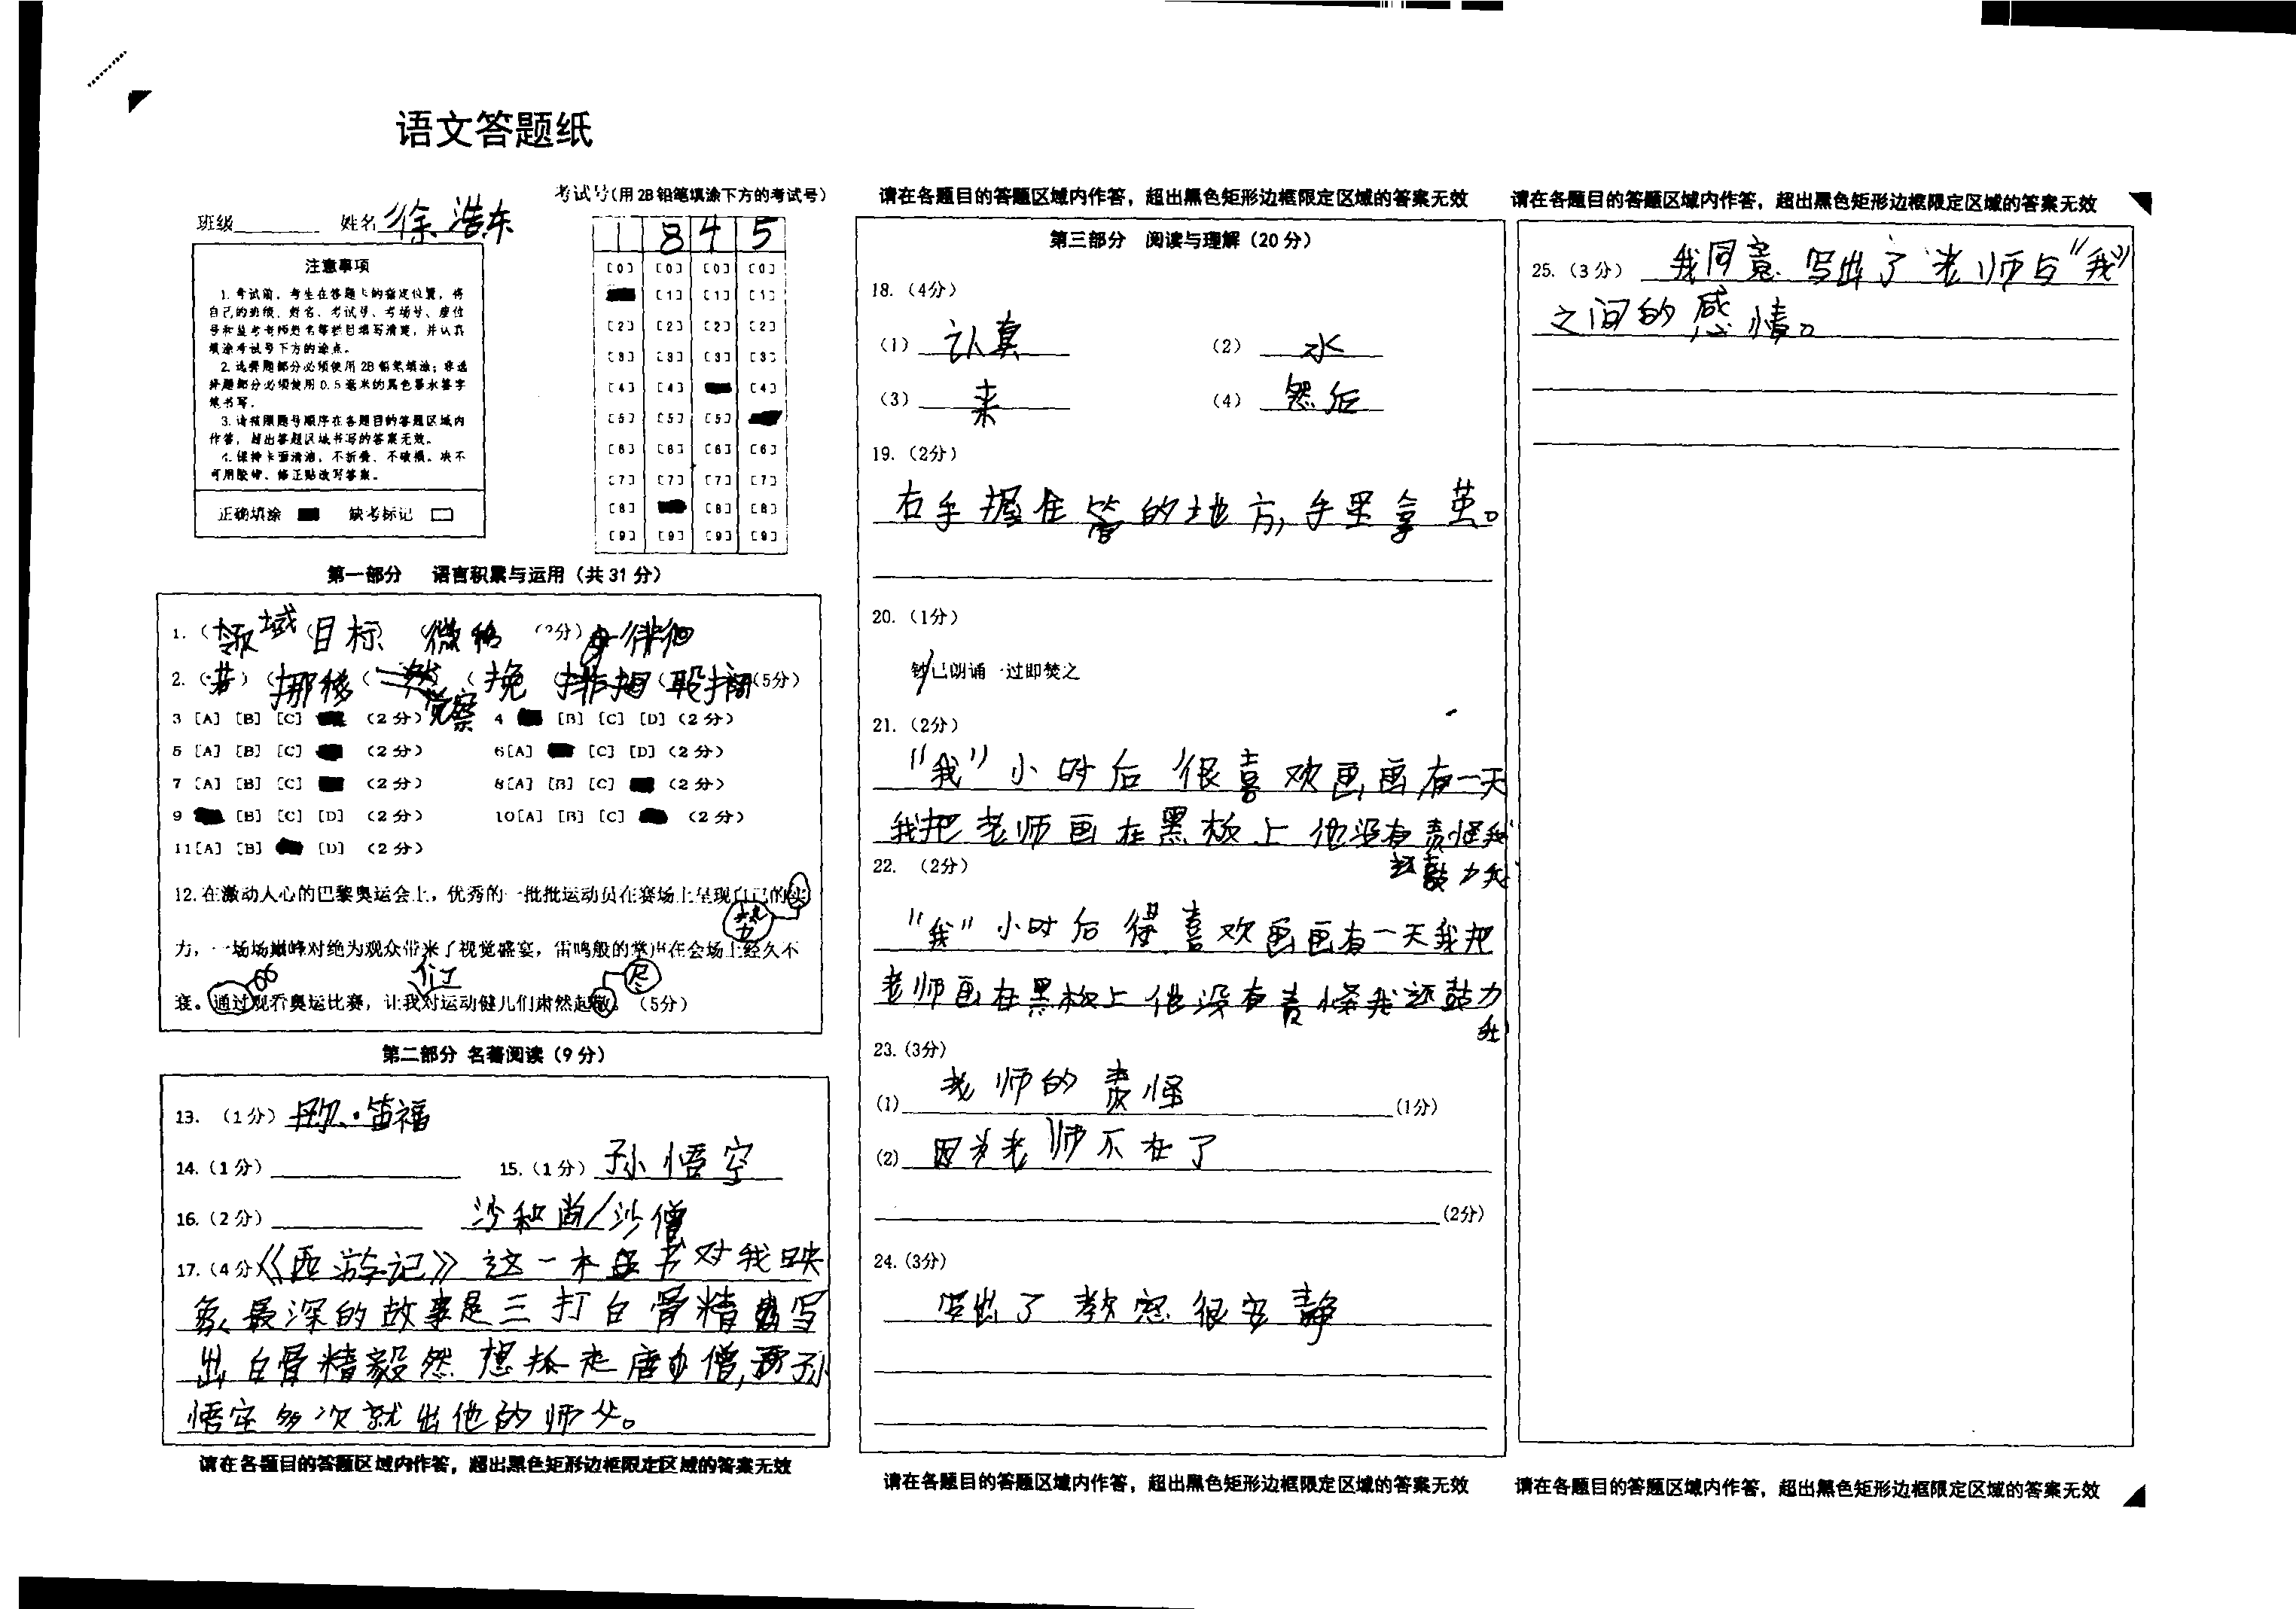 语文答题纸
班级 姓名 徐浩东
考试号(用 2B 铅笔填涂下方的考试号)
1 8 4 5
[0] [0] [0] [0]
[1] [1] [1]
[2] [2] [2] [2]
[3] [3] [3] [3]
[4] [4] [4]
[5] [5] [5]
[6] [6] [6] [6]
[7] [7] [7] [7]
[8] [8] [8]
[9] [9] [9] [9]
注意事项
1. 考试前,考生在答题卡的指定位置,将
自己的班级、姓名、考试号、考场号、座位
号和监考老师姓名等栏目填写清楚,并认真
填涂考试号下方的涂点。
2. 选择题部分必须使用 2B 铅笔填涂;非选
择题部分必须使用 0.5 毫米的黑色墨水签字
笔书写。
3. 请按照题号顺序在各题目的答题区域内
作答,超出答题区域书写的答案无效。
4. 保持卡面清洁,不折叠、不破损。决不
可用胶带、修正贴改写答案。
正确填涂 缺考标记
第一部分 语言积累与运用(共 31 分)
1. 领域 目标 (2分) 徘徊
2. 挪移 觉察 挽 (5分)
3 [A] [B] [C] (2 分) 4 [B] [C] [D] (2 分)
5 [A] [B] [C] (2 分) 6 [A] [C] [D] (2 分)
7 [A] [B] [C] (2 分) 8 [A] [B] [C] (2 分)
9 [B] [C] [D] (2 分) 10 [A] [B] [C] (2 分)
11 [A] [B] [D] (2 分)
12. 在激动人心的巴黎奥运会上,优秀的一批批运动员在赛场上呈现自己的实
力,一场场巅峰对绝为观众带来了视觉盛宴,雷鸣般的掌声在会场上经久不
衰。通过观看奥运比赛,让我对运动健儿们肃然起敬。(5分)
第二部分 名著阅读(9 分)
13. (1 分) 丹尔·笛福
14. (1 分) 15. (1 分) 孙悟空
16. (2 分) 沙和尚/沙僧
17. (4 分) 《西游记》这一本书对我映
象最深的故事是三打白骨精写
出白骨精毅然想抓走唐僧,孙
悟空多次就出他的师父。
请在各题目的答题区域内作答,超出黑色矩形边框限定区域的答案无效
请在各题目的答题区域内作答,超出黑色矩形边框限定区域的答案无效
第三部分 阅读与理解(20 分)
18. (4分)
(1) 认真 (2) 水
(3) 来 (4) 然后
19. (2分)
右手握住管的地方,手里拿茧。
20. (1分)
钞已朗诵一过即焚之
21. (2分)
"我"小时后很喜欢画画有一天
我把老师画在黑板上他没有责怪我
还鼓力我
22. (2分)
"我"小时后得喜欢画画有一天我把
老师画在黑板上他没有责怪我还鼓力
我
23. (3分)
(1) 老师的责怪 (1分)
(2) 因为老师不在了
(2分)
24. (3分)
写出了教室很安静
请在各题目的答题区域内作答,超出黑色矩形边框限定区域的答案无效
请在各题目的答题区域内作答,超出黑色矩形边框限定区域的答案无效
25. (3 分) 我同意.写出了老师与"我"
之间的感情。
请在各题目的答题区域内作答,超出黑色矩形边框限定区域的答案无效